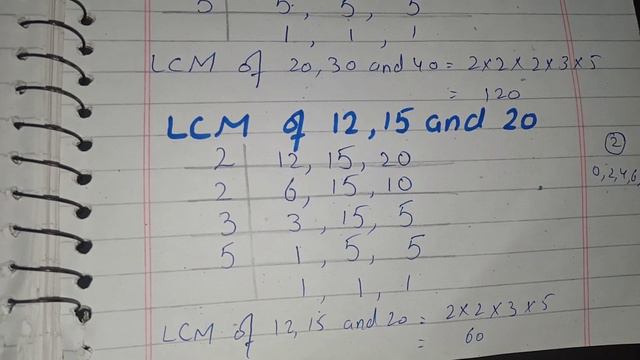 5 5, 5, 5
1, 1, 1
LCM of 20, 30 and 40 = 2×2×2×3×5
= 120
LCM of 12, 15 and 20
2 12, 15, 20
2 6, 15, 10
3 3, 15, 5
5 1, 5, 5
1, 1, 1
LCM of 12, 15 and 20 = 2×2×3×5
= 60
②
0,2,4,6,